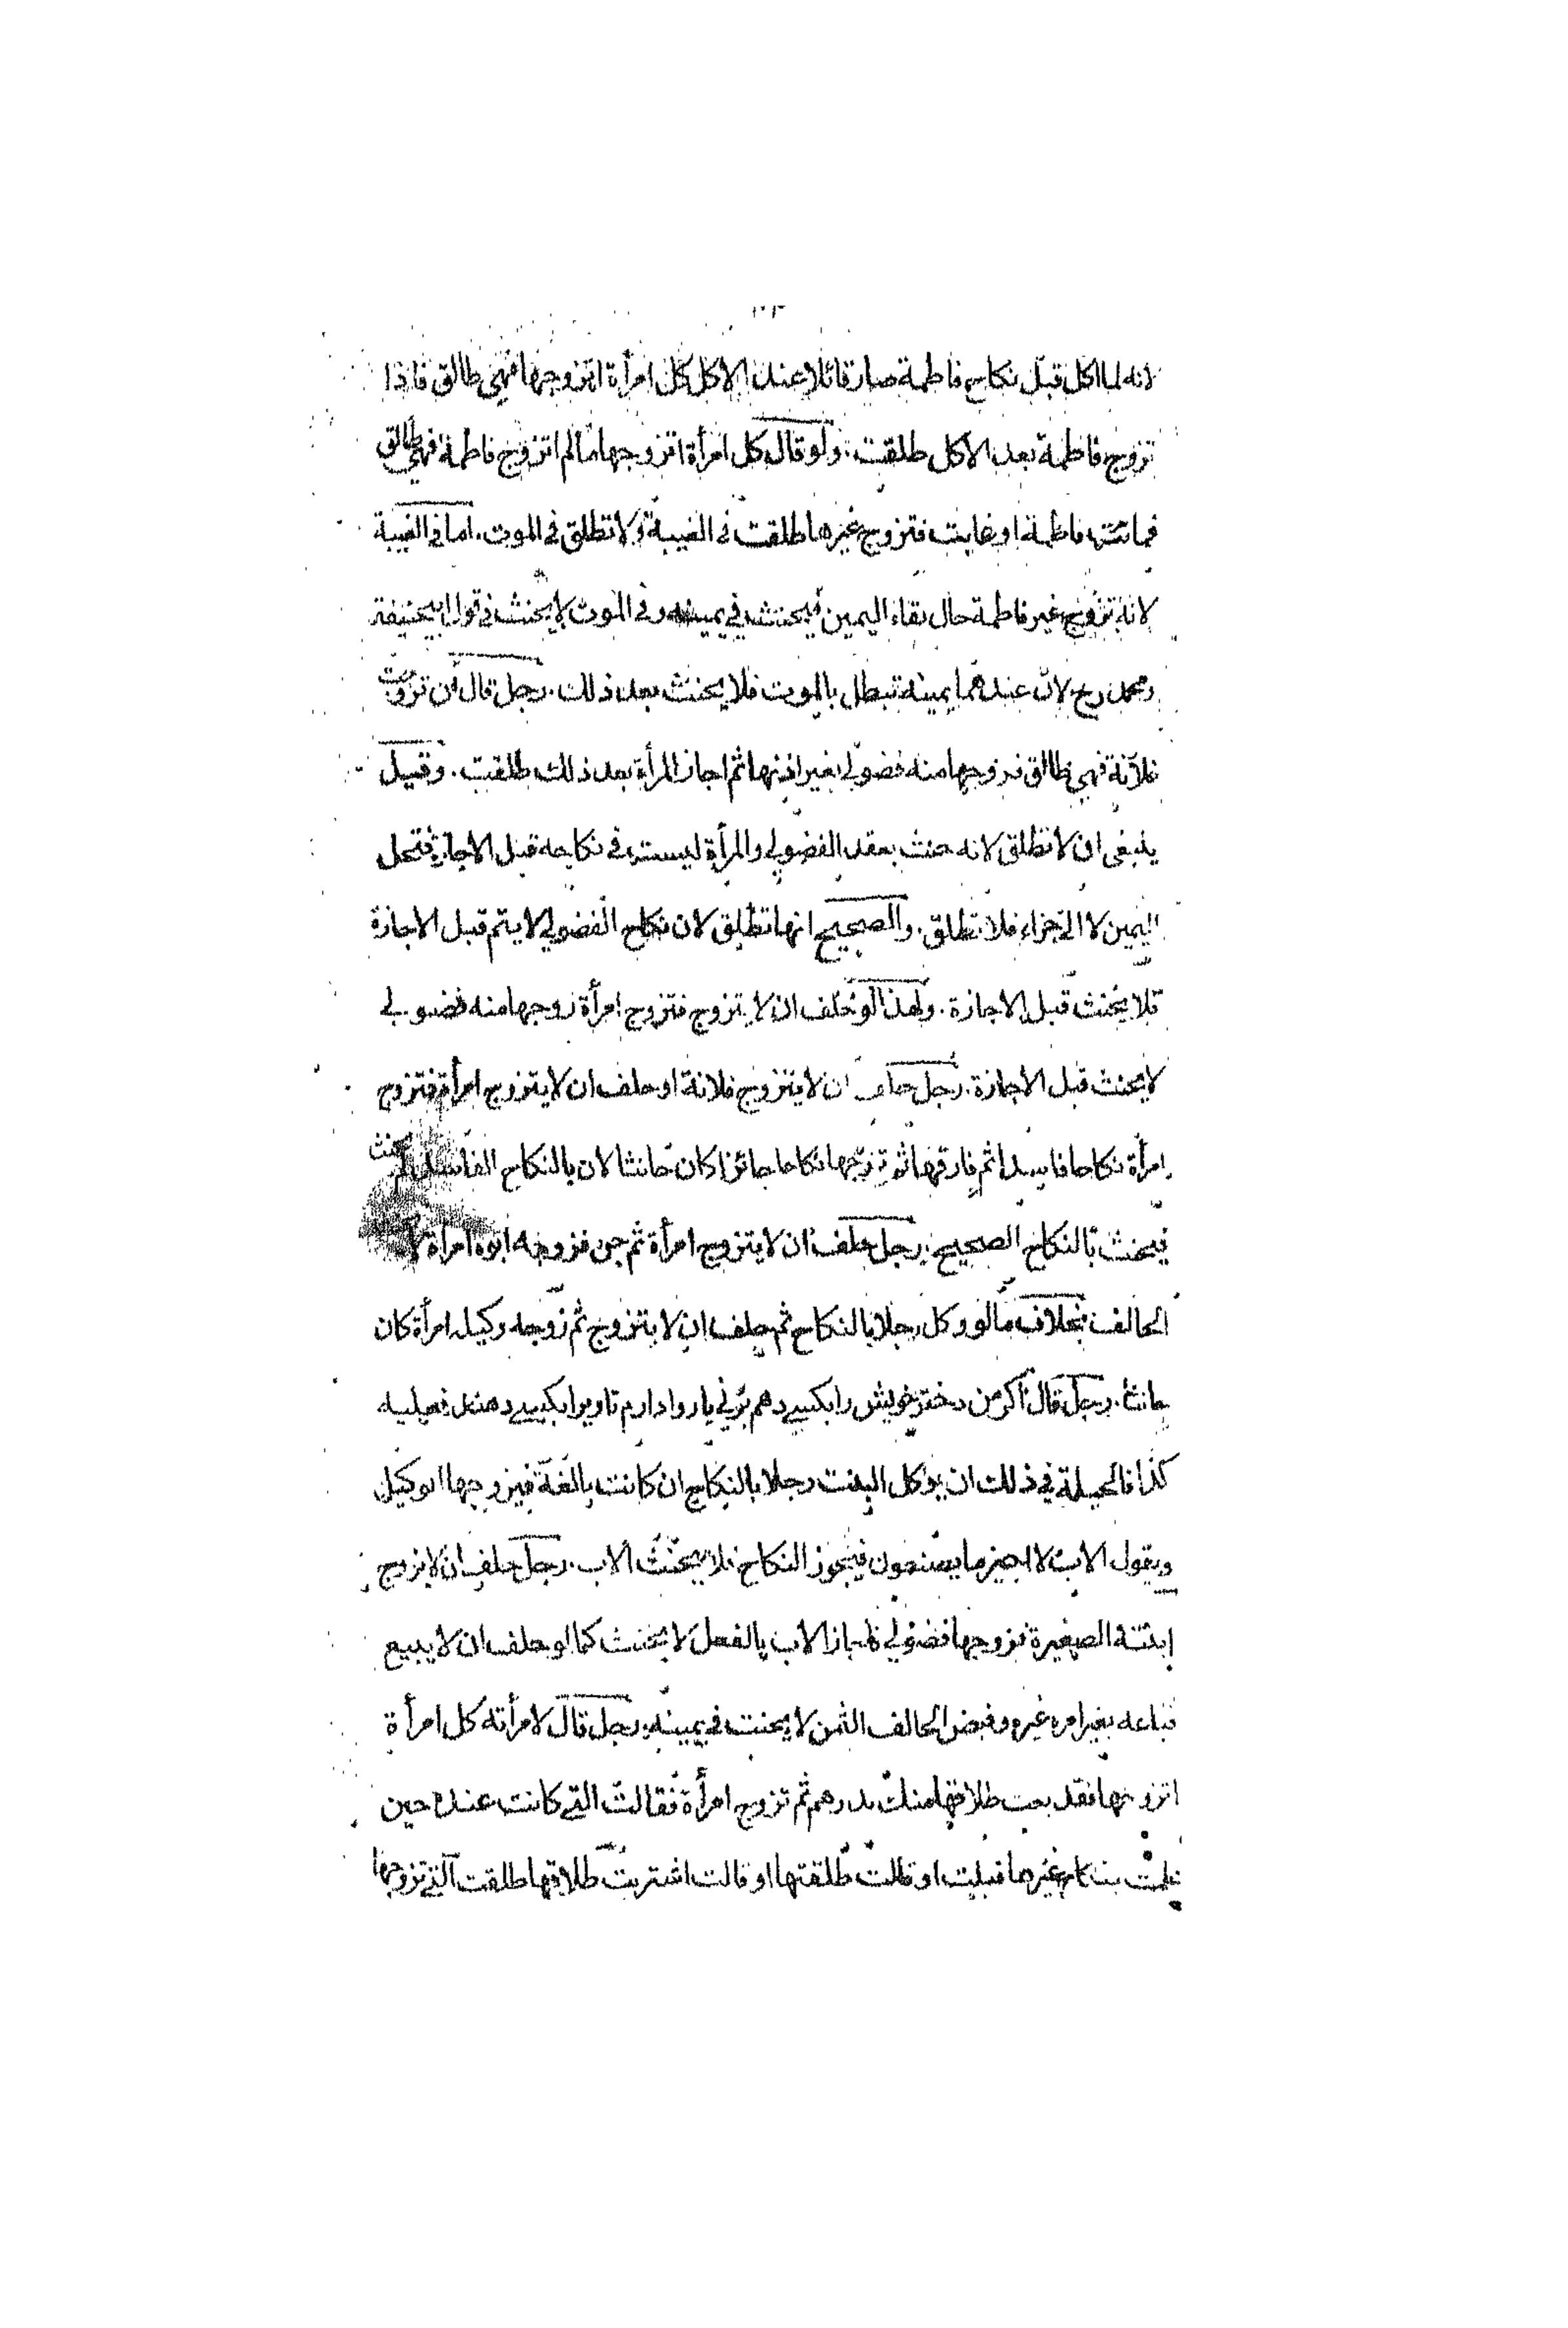 لانه لما اكل قبل نكاح فاطمة صار قائلا عند الاكل كل امرأة اتزوجها فهي طالق فاذا
تزوج فاطمة بعد الاكل طلقت. ولو قال كل امرأة اتزوجها ما لم اتزوج فاطمة فهي طالق
فماتت فاطمة او غابت فتزوج غيرها طلقت فى الغيبة ولا تطلق فى الموت. اما فى الغيبة
لانه تزوج غير فاطمة حال بقاء اليمين فيحنث في يمينه وفى الموت لا يحنث فى قول ابيحنيفة
ومحمد رح لان عندهما يمينه تبطل بالموت فلا يحنث بعد ذلك. رجل قال ان تزوجت
فلانة فهي طالق فزوجها منه فضولي بغير اذنها ثم اجاز المرأة بعد ذلك طلقت. وقيل
ينبغى ان لا تطلق لانه حنث بعقد الفضولي والمرأة ليست فى نكاحه قبل الاجازة فتحل
اليمين لا الى جزاء فلا تطلق. والصحيح انها تطلق لان نكاح الفضولي لا يتم قبل الاجازة
فلا يحنث قبل الاجازة. ولهذا لو حلف ان لا يتزوج فتزوج امرأة زوجها منه فضولي
لا يحنث قبل الاجازة. رجل حلف ان لا يتزوج فلانة او حلف ان لا يتزوج امرأة فتزوج
امرأة نكاحا فاسدا ثم فارقها ثم تزوجها نكاحا جائزا كان حانثا لان بالنكاح الفاسد لم يحنث
فيحنث بالنكاح الصحيح. رجل حلف ان لا يتزوج امرأة ثم جن فزوجه ابوه امرأة لا
الحالف بخلاف ما لو وكل رجلا بالنكاح ثم حلف ان لا يتزوج ثم زوجه وكيله امرأة كان
حانثا. رجل قال اكر من دختر خويش را بكسي دهم بزني يا روا دارم تا ويرا بكسي دهند فعليه
كذا فالحيلة في ذلك ان يوكل البنت رجلا بالنكاح ان كانت بالغة فيزوجها الوكيل
ويقول الاب لا اجيز ما يصنعون فيجوز النكاح فلا يحنث الاب. رجل حلف ان لا يزوج
ابنته الصغيرة فزوجها فضولي فاجاز الاب بالفعل لا يحنث كما لو حلف ان لا يبيع
فباعه بغير امره غيره وقبض الحالف الثمن لا يحنث في يمينه. رجل قال لامرأته كل امرأة
اتزوجها فقد بعت طلاقها منك بدرهم ثم تزوج امرأة فقالت التي كانت عنده حين
علمت بنكاح غيرها قبلت او قالت طلقتها او قالت اشتريت طلاقها طلقت التي تزوجها